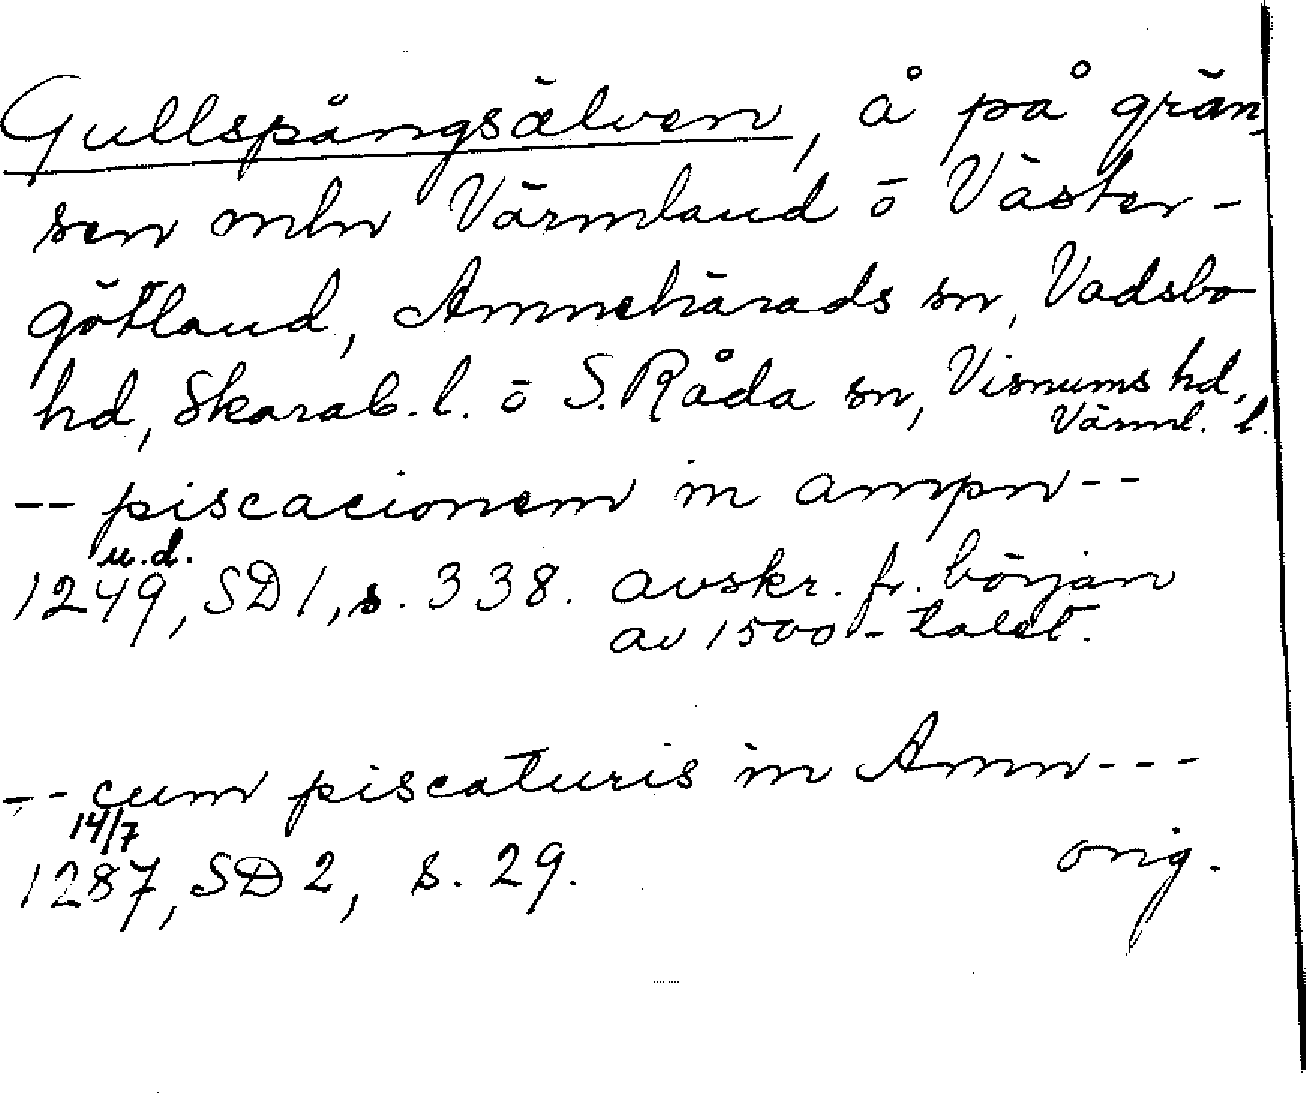 Gullspångsälven, å på grän-
sen mln Värmland o Väster-
götland, Amnehärads sn, Vadsbo
hd, Skarab. l. o S. Råda sn, Visnums hd,
Värml. l.
-- piscacionem in ampn--
u.d.
1249, SD 1, s. 338. avskr. fr. början
av 1500-talet.
-- cum piscaturis in Amn---
14/7
1287, SD 2, s. 29. orig.